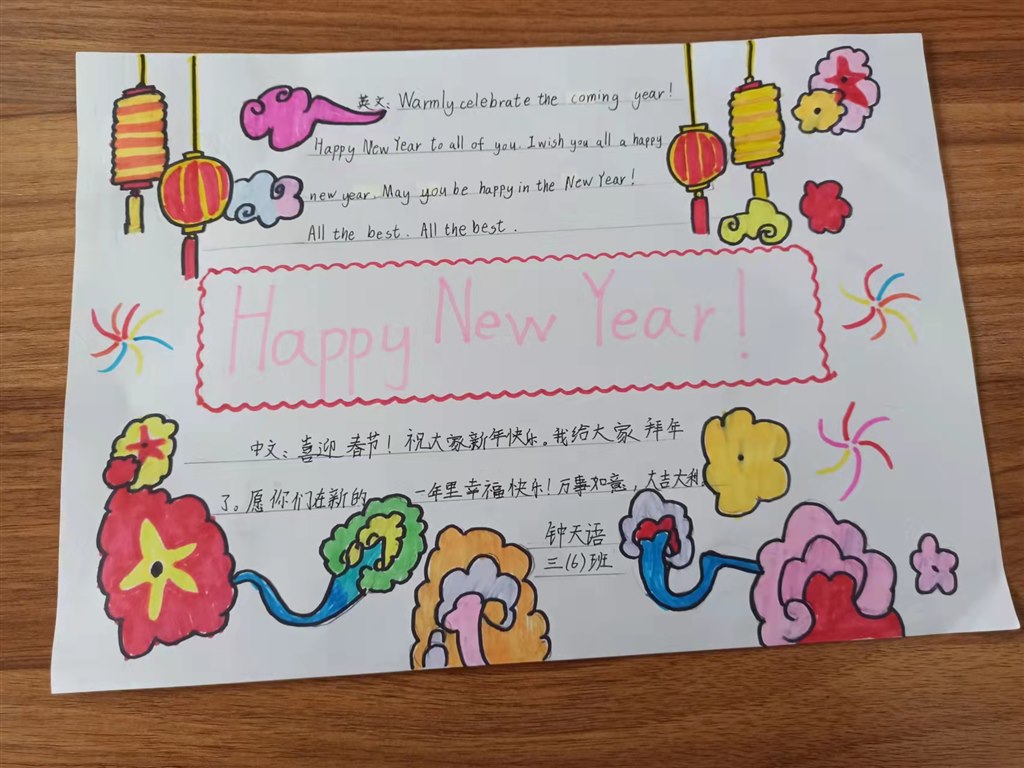 英文：Warmly celebrate the coming year!
Happy New Year to all of you. I wish you all a happy
new year. May you be happy in the New Year!
All the best. All the best.
Happy New Year!
中文：喜迎春节！祝大家新年快乐。我给大家拜年
了。愿你们在新的一年里幸福快乐！万事如意，大吉大利！
钟天语
三(6)班